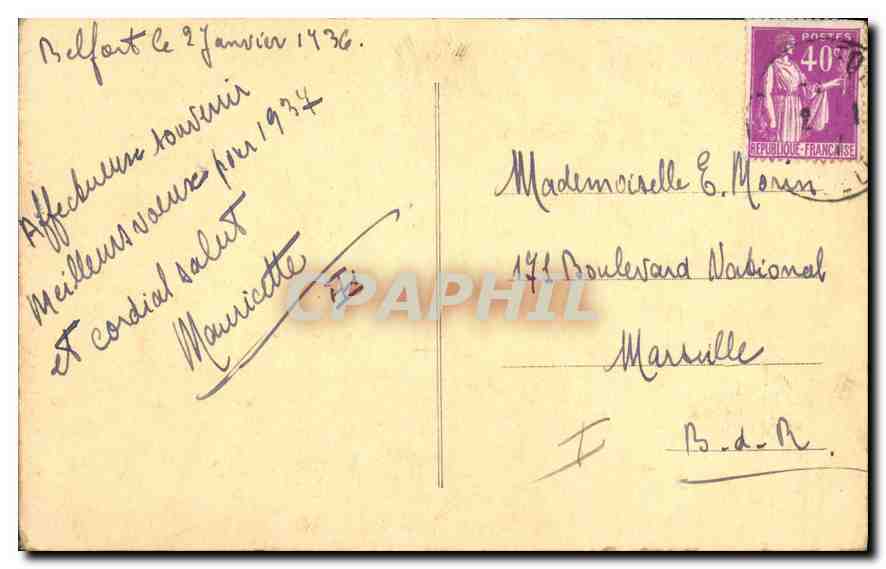 Belfort le 2 Janvier 1936.
Affectueux souvenir
Meilleurs voeux pour 1937
et cordial salut
Mauricette
POSTES
40c
REPUBLIQUE-FRANÇAISE
Mademoiselle E. Morin
171 Boulevard National
Marseille
B-d-R.
CPAPHIL